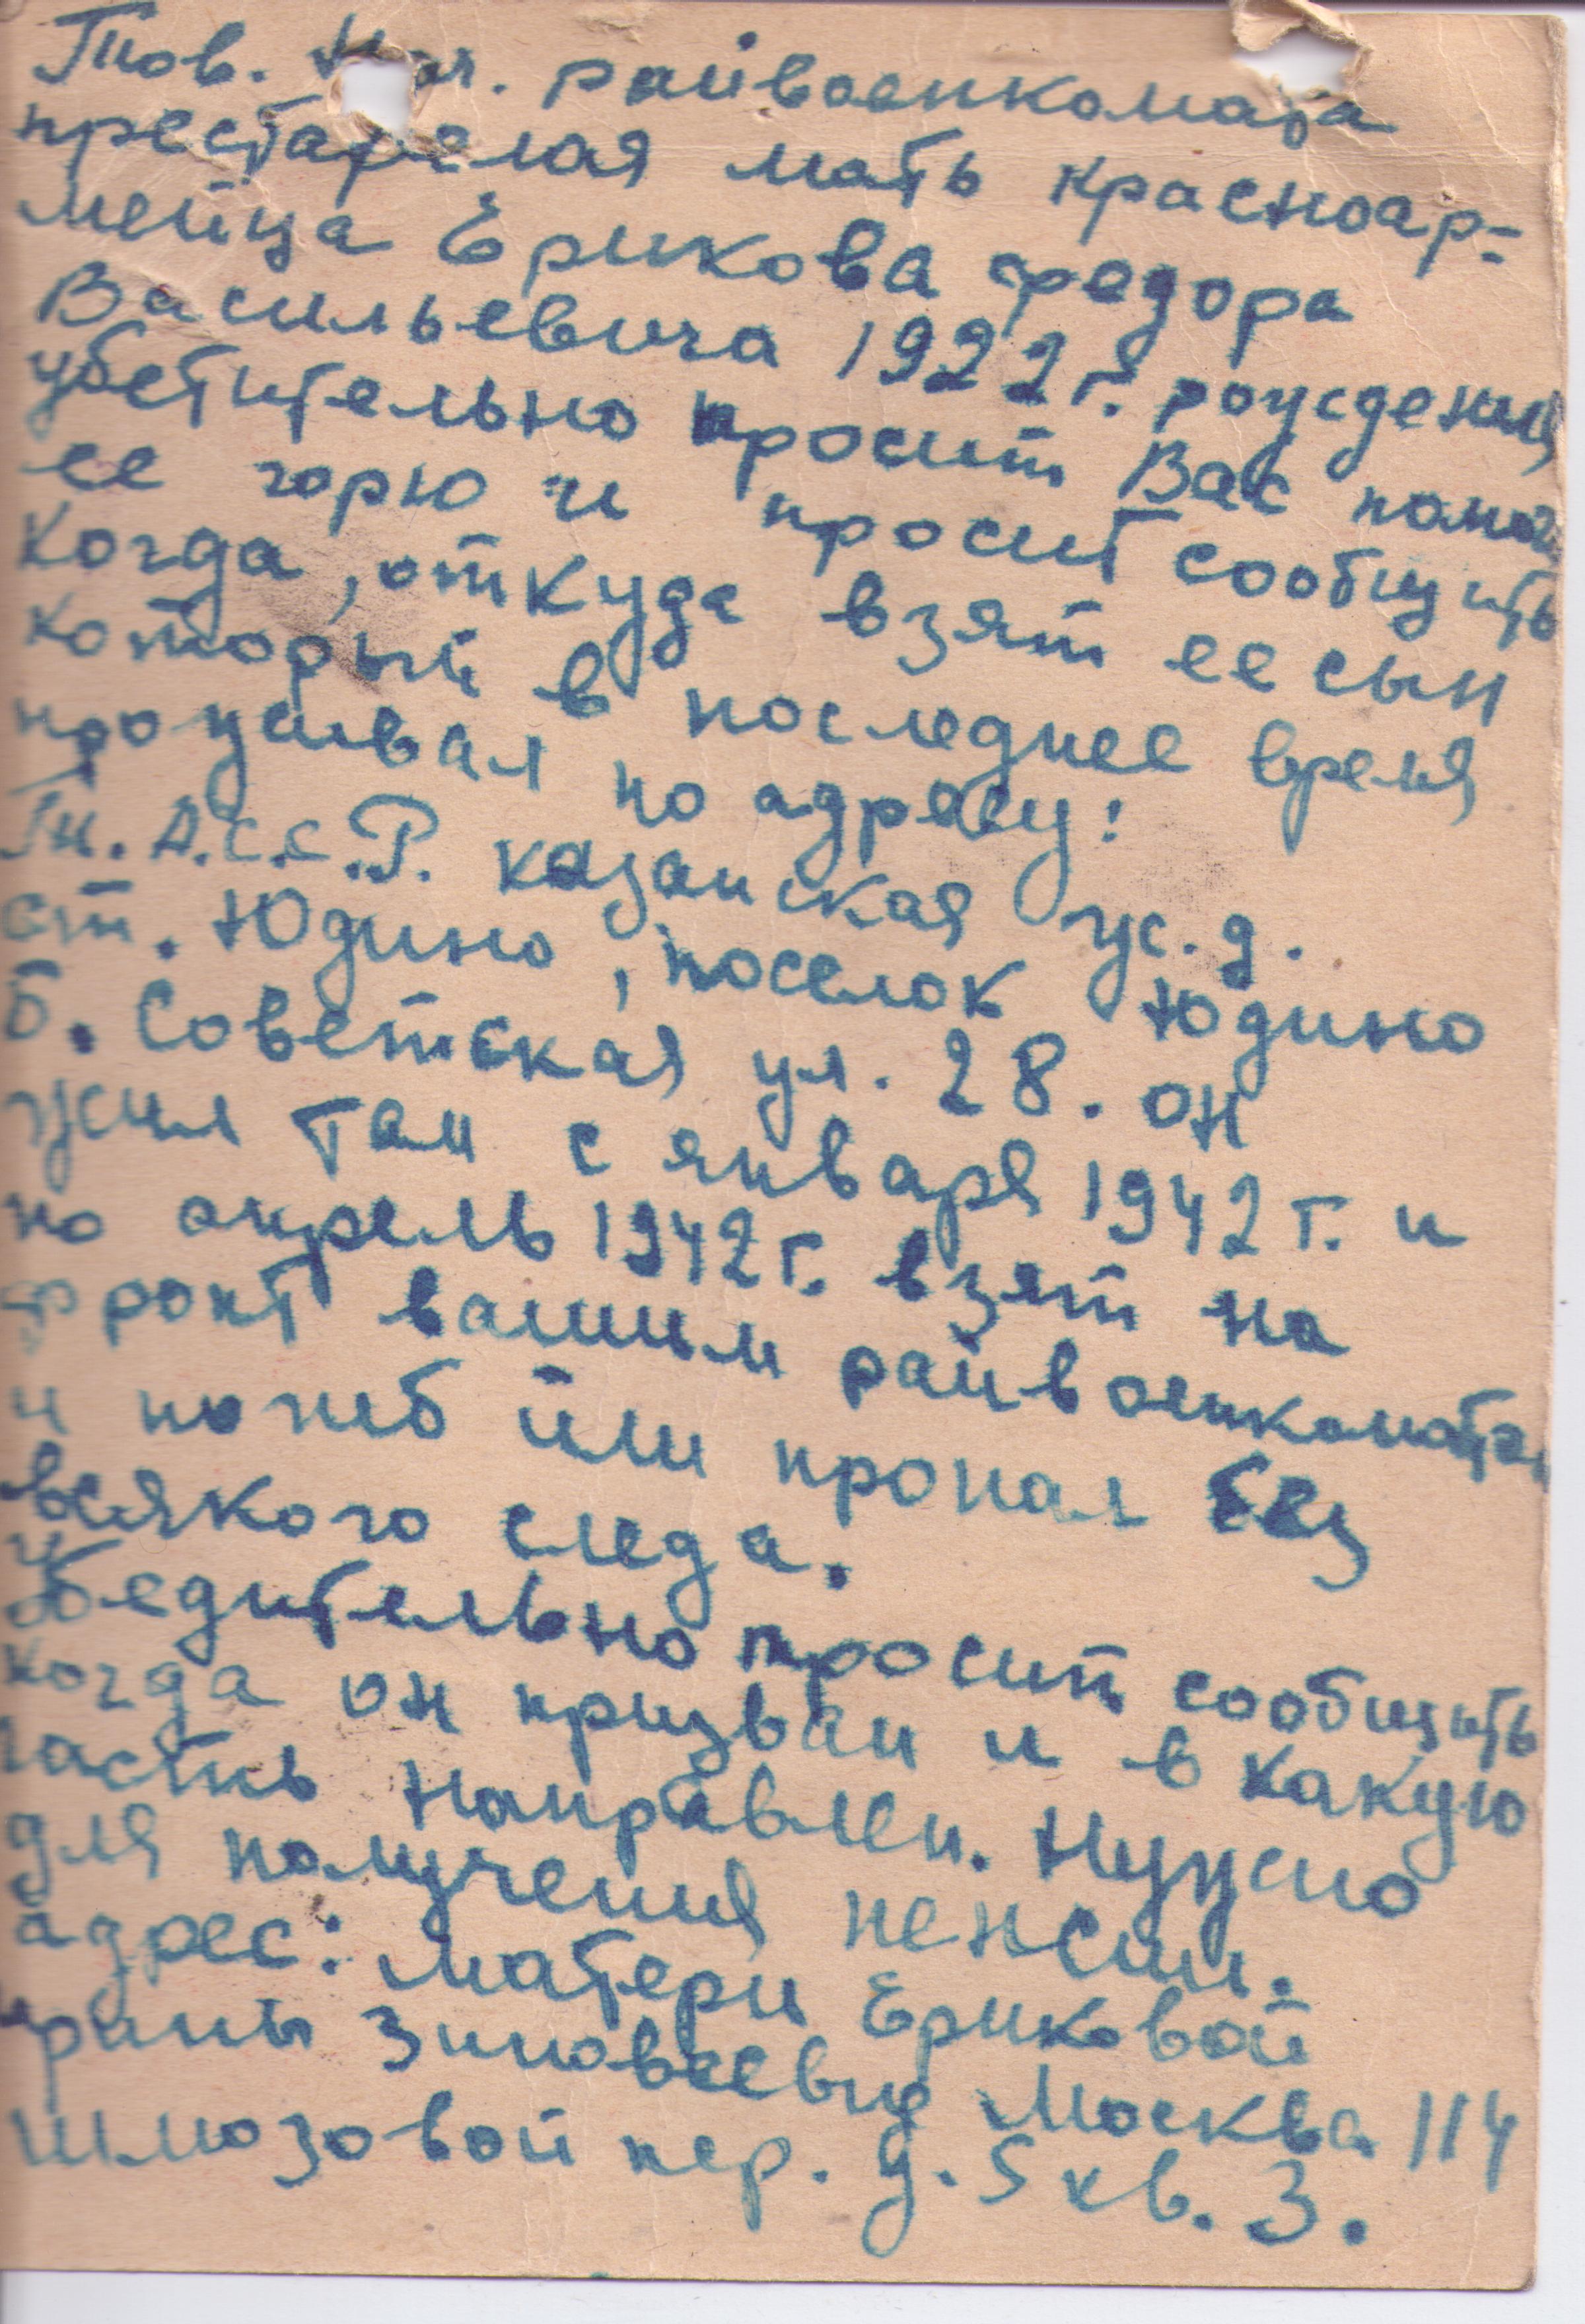 Тов. Нач. райвоенкомата
престарелая мать красноар-
мейца Ерикова Федора
Васильевича 1922 г. рождения
убетительно просит Вас помоч
ее горю и просит сообщить
Когда, откуда взят ее сын
который в последнее время
проживал по адресу:
Т. А.С.С.Р. Казанская ж.д.
ст. Юдино, поселок Юдино
Б. Советская ул. 28. он
жил там с января 1942 г. и
по апрель 1942 г. взят на
фронт вашим райвоенкоматом
и погиб или пропал без
всякого следа.
убедительно просит сообщить
когда он призван и в какую
часть направлен. Нужно
для получения пенсии.
адрес: матери Ериковой
Ирины Зиновьевны Москва 114
Шлюзовой пер. д. 5 кв. 3.